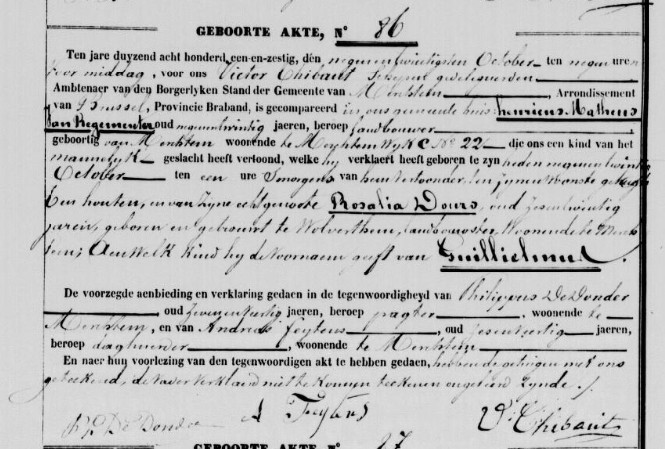 GEBOORTE AKTE, N° 86
Ten jare duyzend acht honderd een-en-zestig, den negenentwintigsten October ten negen uren
voor middag, voor ons Victor Thibaut Schepen gedelegeerden
Ambtenaer van den Borgerlyken Stand der Gemeente van Merchtem, Arrondissement
van Brussel, Provincie Braband, is gecompareerd in ons gemeente huis Henricus Matheus
Van Regemorter oud negenentwintig jaeren, beroep landbouwer
geboortig van Merchtem woonende te Merchtem Wyk C N° 22 die ons een kind van het
mannelyk geslacht heeft vertoond, welke hy verklaert heeft geboren te zyn heden negenentwintig
October ten een ure Smorgens van hem vertoonder, ten zynen woonste
houten, en van zyne echtgenoote Rosalia Dours, oud zesentwintig
jaeren, geboren en gehuwd te Wolverthem, landbouwster, Woonende te Merch
tem; Aen Welk Kind hy de Voornaem geeft van Guillielmus.
De voorzegde aenbieding en verklaring gedaen in de tegenwoordigheyd van Philippus De Donder
oud jaeren, beroep pagter, woonende te
Merchtem, en van Andreas Feytens, oud zesenveertig jaeren,
beroep daghuerder, woonende te Merchtem
En naer hun voorlezing van den tegenwoordigen akt te hebben gedaen, hebben de getuigen met ons
geteekend, de Vader Verklaerd niet te konnen teekenen ongeleerd zynde ./.
P. De Donder A Feytens V. Thibaut
GEBOORTE AKTE, N° 87